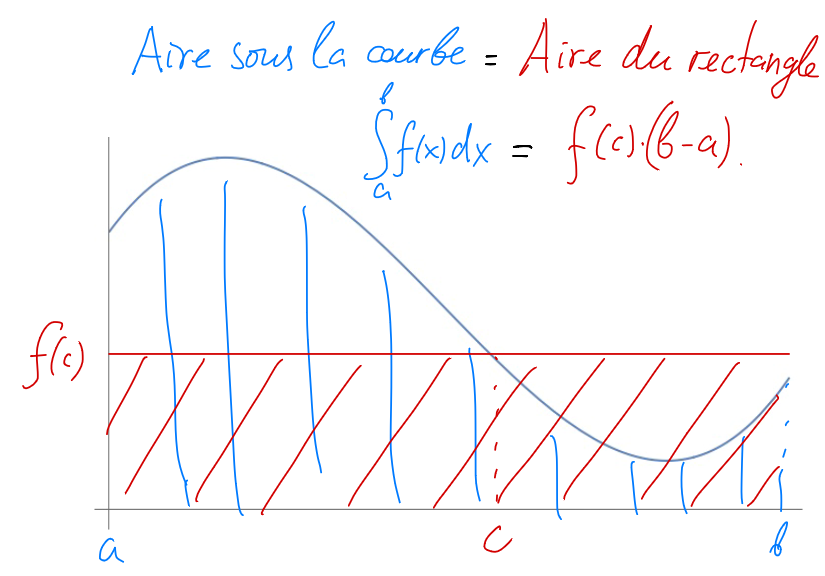 Aire sous la courbe = Aire du rectangle
∫ₐᵇ f(x)dx = f(c)·(b-a).
f(c)
a c b